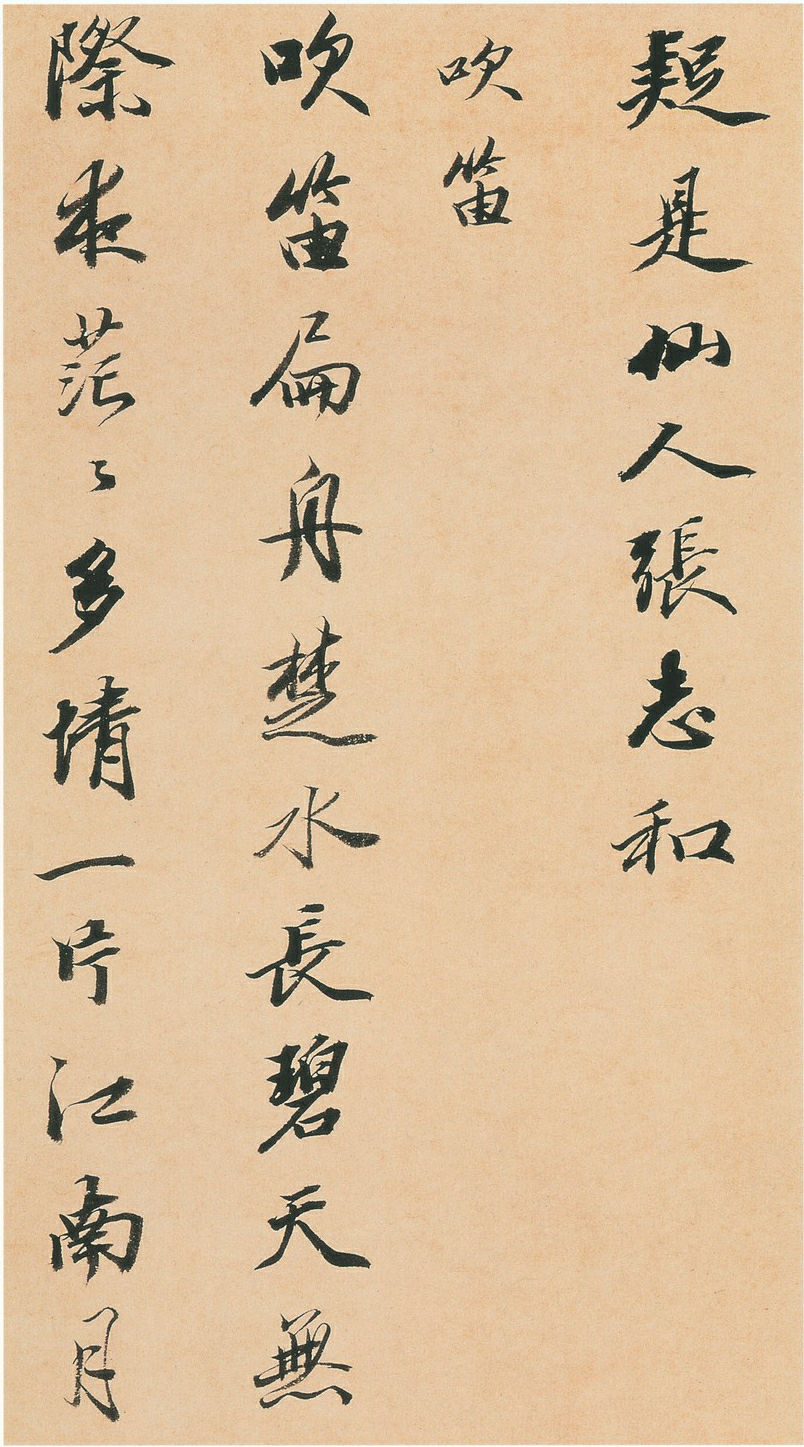 疑是仙人張志和
吹笛
吹笛扁舟楚水長碧天無
際夜茫〻多情一片江南月